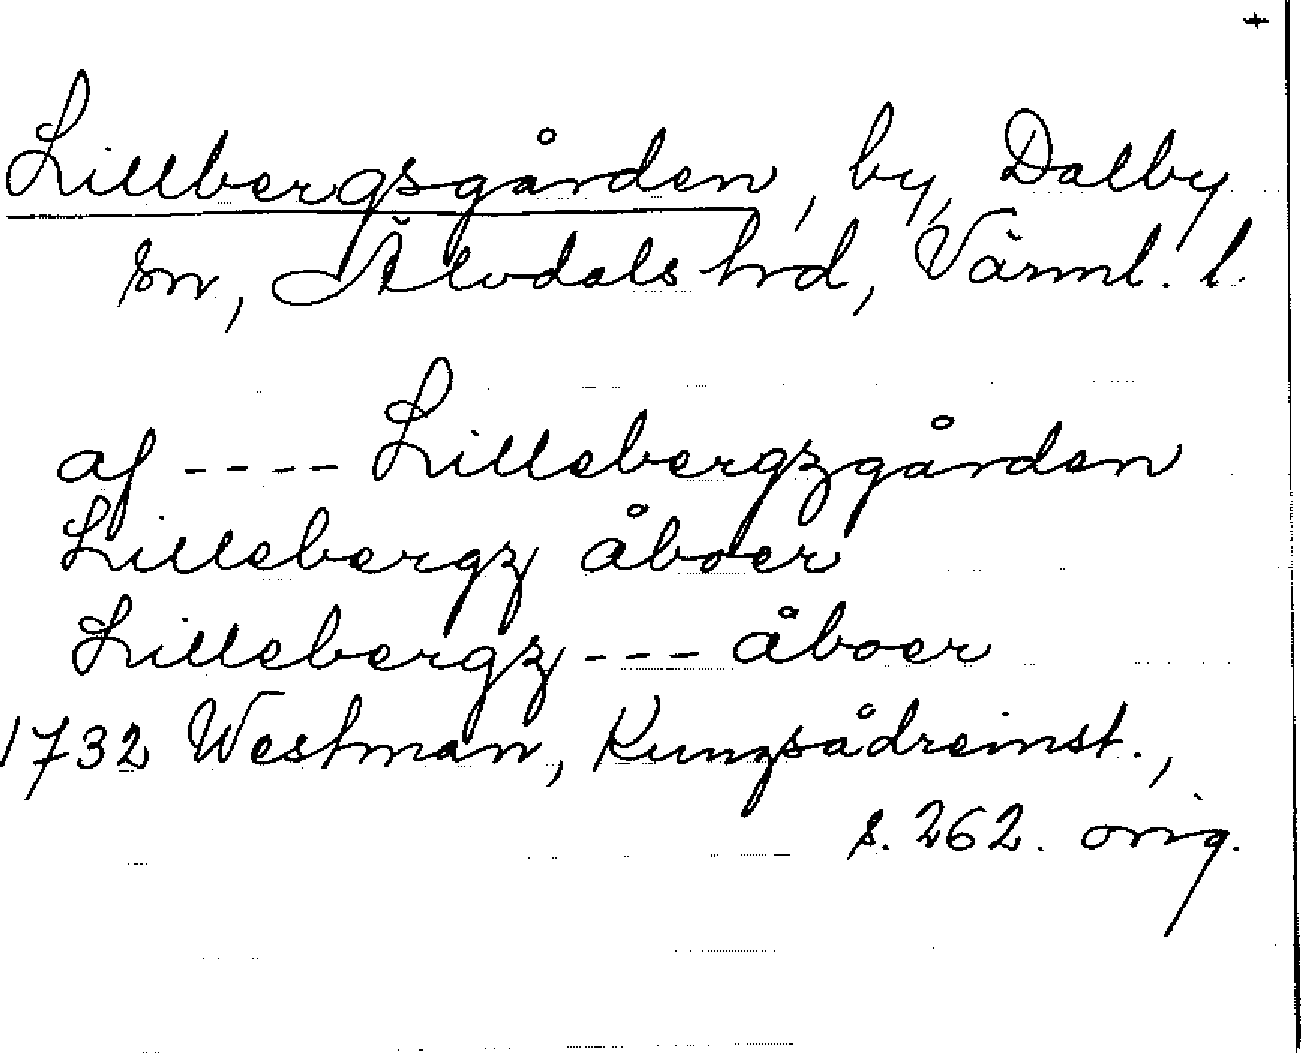 Lillbergsgården, by, Dalby
sn, Älvdals hrd, Värml. l.
af ---- Lillebergzgården
Lillebergz åboer
Lillebergz --- åboer
1732 Westman, Kungsådreinst.,
s. 262. orig.